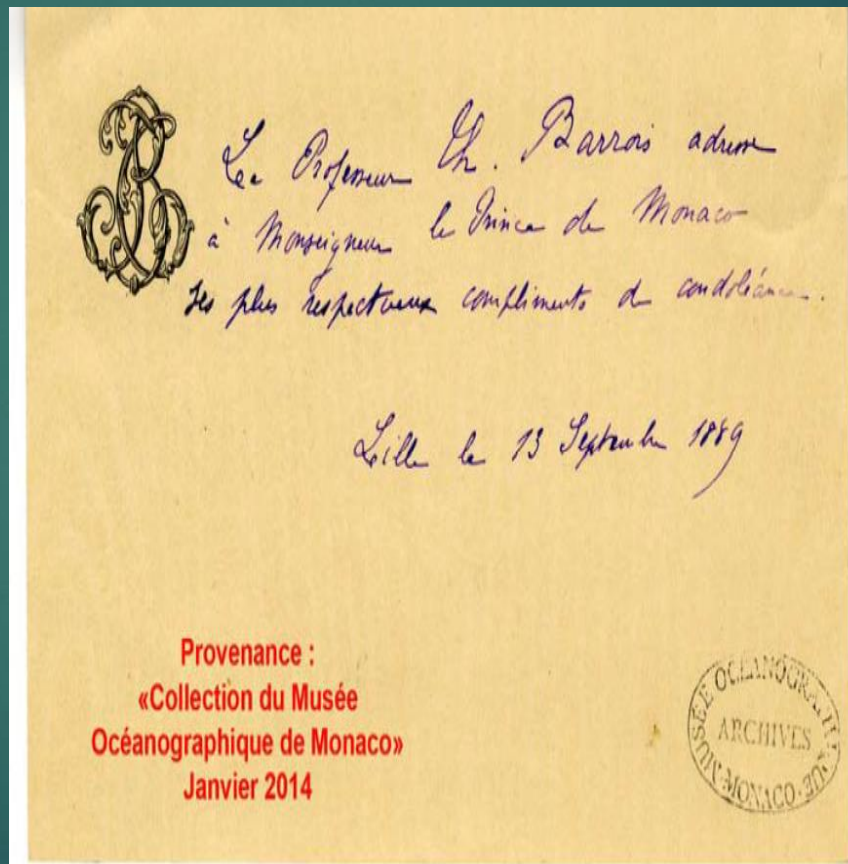 Le Professeur Th. Barrois adresse
à Monseigneur le Prince de Monaco
ses plus respectueux compliments de condoléances.
Lille le 13 Septembre 1889
Provenance :
«Collection du Musée
Océanographique de Monaco»
Janvier 2014
MUSÉE OCÉANOGRAPHIQUE · MONACO ·
ARCHIVES